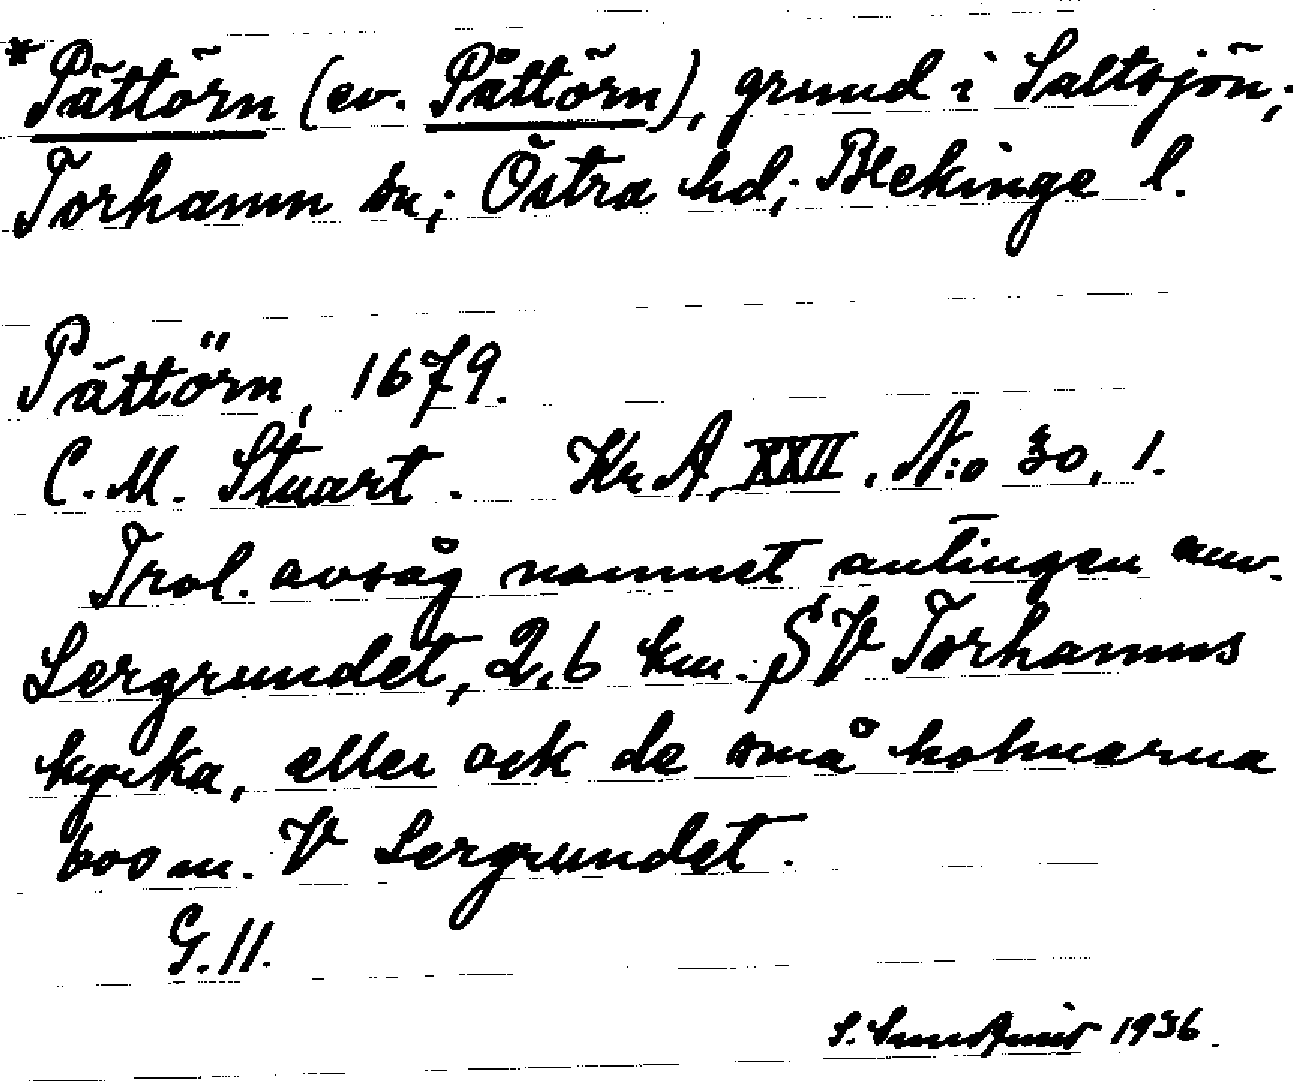 *Pättörn (ev. Påttörn), grund i Saltsjön;
Torhamn sn; Östra hd; Blekinge l.
Pättörn, 1679.
C. M. Stuart. Kr. A, XXII, N:o 30, 1.
Trol. avsåg namnet antingen nuv.
Lergrundet, 2,6 km. SV Torhamns
kyrka, eller ock de små holmarna
600 m. V Lergrundet.
G. 11.
1936.